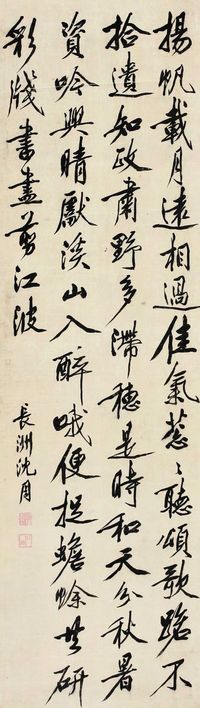 揚帆載月遠相過佳氣蔥〻聽頌歌路不
拾遺知政肅野多滯穗是時和天分秋暑
資吟興晴獻淡山入醉哦便捉蟾蜍共研
彩牋書盡剪江波
長洲沈周